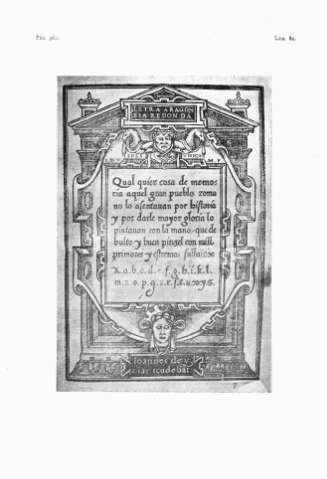 LETRA ARAGON
ESA REDONDA
Qual quier cosa de memo
ria aquel gran pueblo roma
no lo asentauan por historia
y por darle mayor gloria lo
pintauan con la mano, que de
bulto y buen pinzel con mill
primores y estremos
x. a. b. c. d. e. f. g. h. i. k. l.
m. n. o. p. q. z. r. s. t. u. x. y. z.
Ioannes de y
ciar excudebat